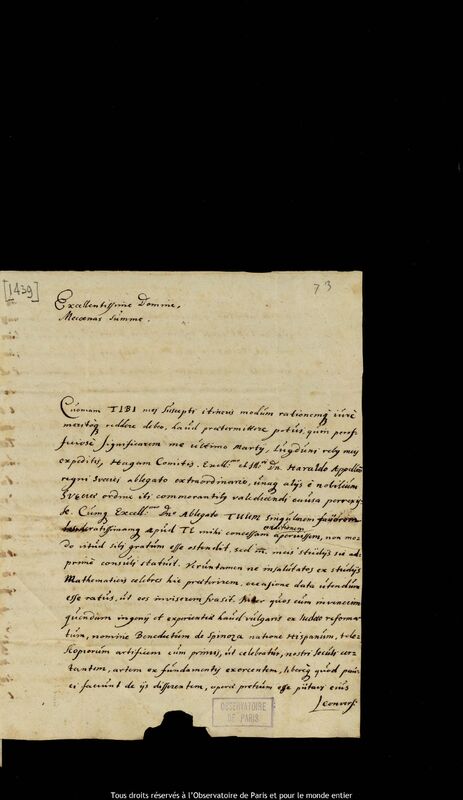 [1439]
73
Excellentissime Domine,
Mecoenas Summe.
Quoniam TIBI mei suscepti itineris modum rationemq iure
meritoq reddere debeo, haud praetermittere potui, quin
significarem me ultimo Marty, Lugduni rebg meis
expeditis, Hagam Comitis. Excell: et Ill: Dn. Haraldo Appelboom
regni Sveciae ablegato extraordinario, unaq alijs è nobilium
Sveciae ordine ibi commorantibg valedicendi causa perrexis-
se. Cumq Excell: Dno Ablegato TUUM singularem favorem
apud Te mihi concessam aperuissem, non mo-
do istud sibi gratum esse ostendit, sed et meis studijs sic ad-
primè consuli statuit. Veruntamen ne insalutatos ex studijs
Mathematicis celebres hic praeterirem, occasione data utendum
esse ratus, ut eos inviserem suasit. Inter quos cum invenerim
quendam ingenij et experientiae haud vulgaris ex Iudaeo reforma-
tum, nomine Benedictum de Spinoza natione Hispanum, teles-
scopiorum artificem cum primis, ut celebratur, nostri seculi cer-
tantem, artem ex fundamentis exercentem, libereq quod pauci
faciunt de ijs disserentem, operae pretium esse putavi eius
OBSERVATOIRE
DE PARIS
Tous droits réservés à l'Observatoire de Paris et pour le monde entier